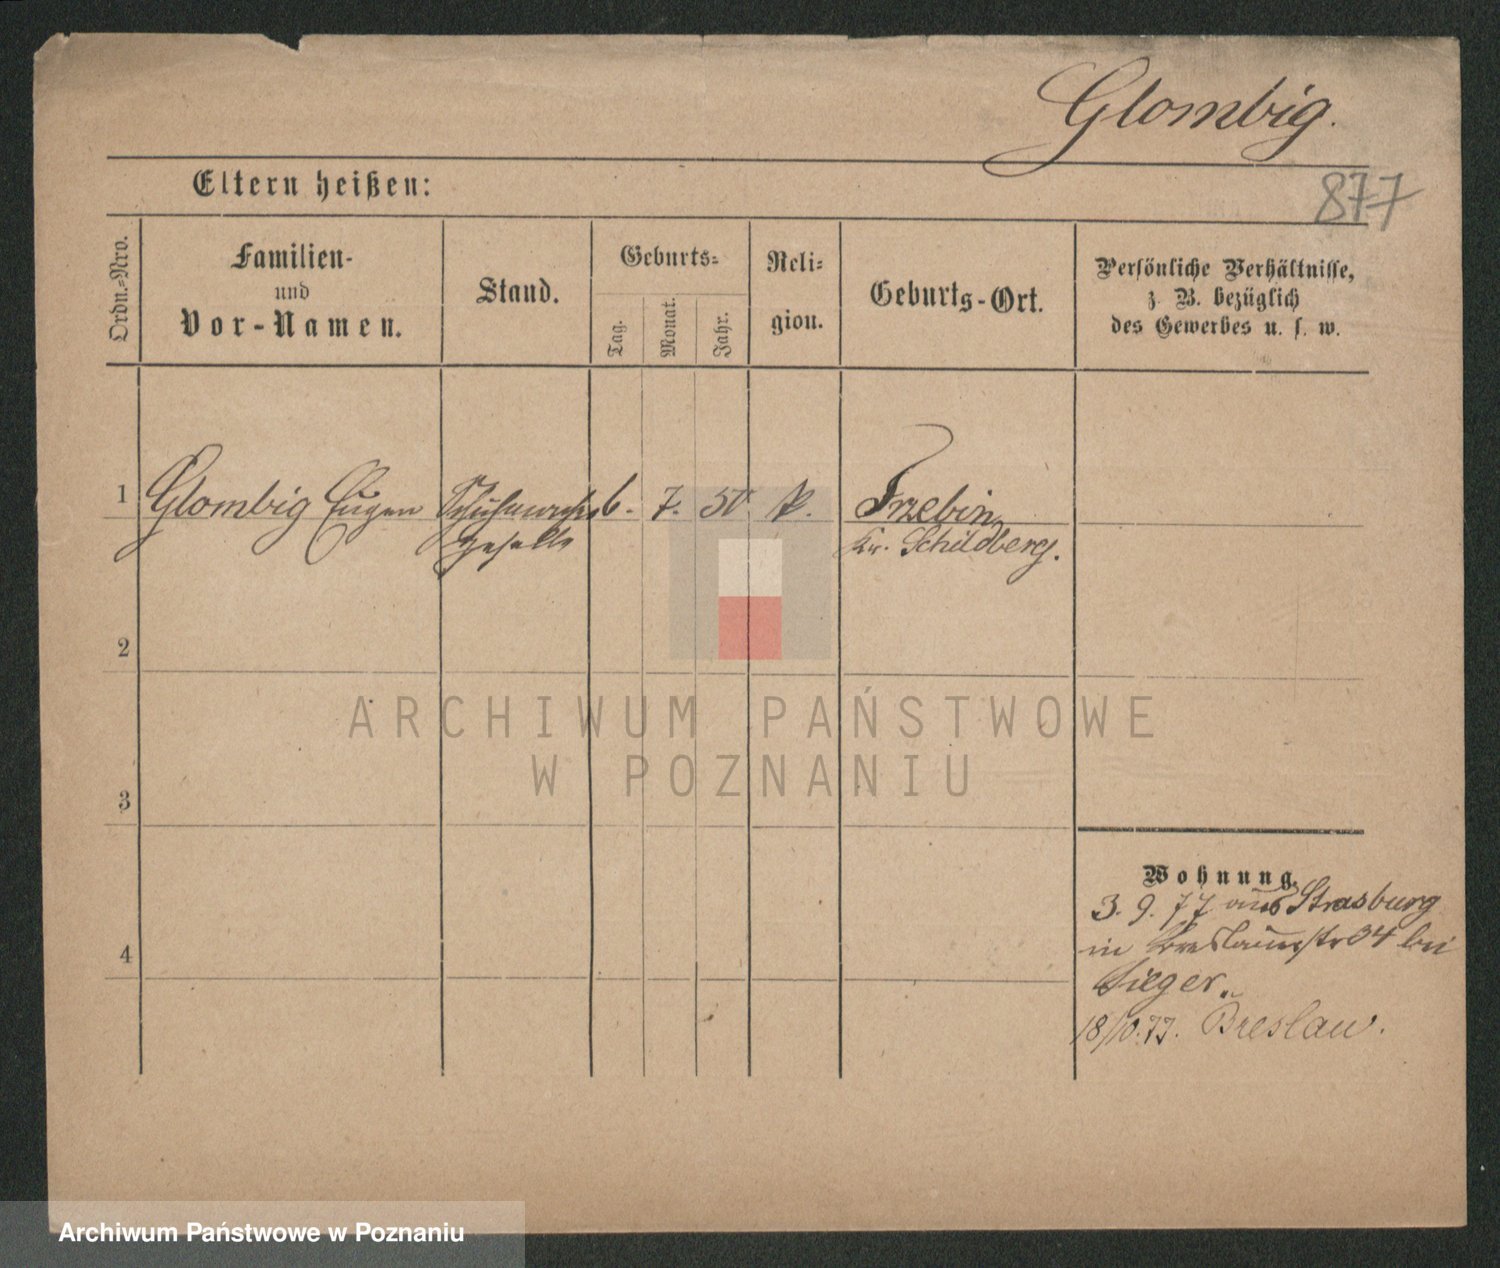 Glombig.
877
Eltern heißen:
Ordn.-Nro.
Familien-
und
Vor-Namen.
Stand.
Geburts-
Tag.
Monat.
Jahr.
Reli-
gion.
Geburts-Ort.
Persönliche Verhältnisse,
z. B. bezüglich
des Gewerbes u. s. w.
1
Glombig Eugen
Schuhmacher
Geselle
6.
7.
50
k.
Trzebin
Kr. Schildberg.
2
3
4
Wohnung.
3. 9. 77 aus Strasburg
in Breslauerstr 34 bei
Sieger.
18/10. 77. Breslau.
ARCHIWUM PAŃSTWOWE
W POZNANIU
Archiwum Państwowe w Poznaniu